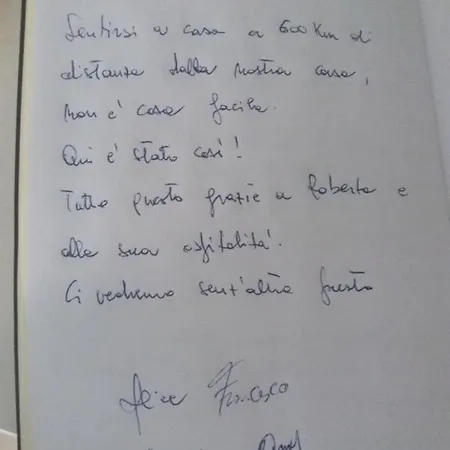 Sentirsi a casa a 600 Km di
distanza dalla nostra casa,
non è cosa facile.
Qui è stato così!
Tutto questo grazie a Roberta e
alla sua ospitalità.
Ci vedremo senz'altro presto
Francesco